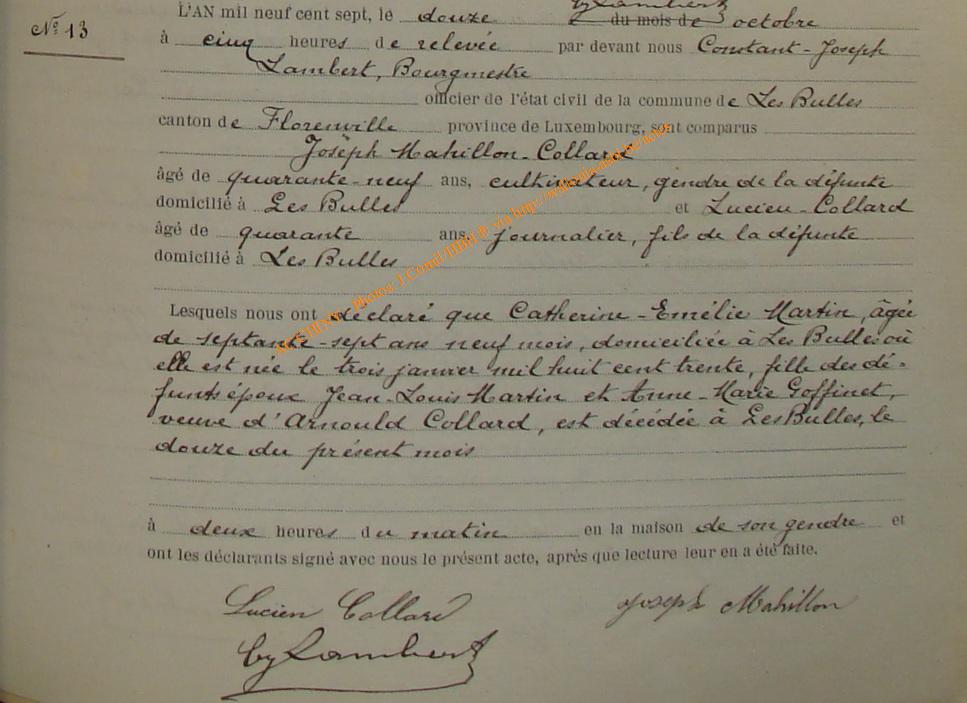 N° 13
L'AN mil neuf cent sept, le douze du mois de octobre
à cinq heures de relevée par devant nous Constant-Joseph
Lambert, Bourgmestre
officier de l'état civil de la commune de Les Bulles
canton de Florenville province de Luxembourg, sont comparus
Joseph Mahillon-Collard
âgé de quarante-neuf ans, cultivateur, gendre de la défunte
domicilié à Les Bulles et Lucien-Collard
âgé de quarante ans, journalier, fils de la défunte
domicilié à Les Bulles
Lesquels nous ont déclaré que Catherine-Emélie Martin, âgée
de septante-sept ans neuf mois, domiciliée à Les Bulles où
elle est née le trois janvier mil huit cent trente, fille des dé-
funts époux Jean-Louis Martin et Anne-Marie Goffinet,
veuve d'Arnould Collard, est décédée à Les Bulles, le
douze du présent mois
à deux heures du matin en la maison de son gendre et
ont les déclarants signé avec nous le présent acte, après que lecture leur en a été faite.
Lucien Collard Joseph Mahillon
Lambert